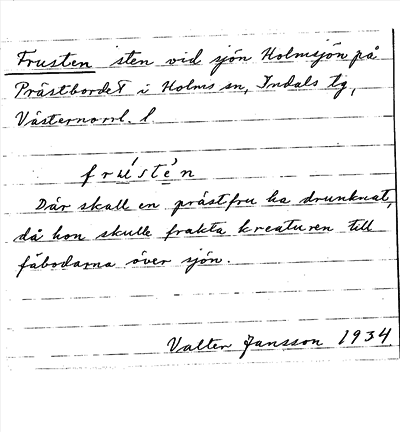 Frusten sten vid sjön Holmsjön på
Prästbordet i Holms sn, Indals tg,
Västernorrl. l.
frús̀te̊n
Där skall en prästfru ha drunknat,
då hon skulle frakta kreaturen till
fäbodarna över sjön.
Valter Jansson 1934